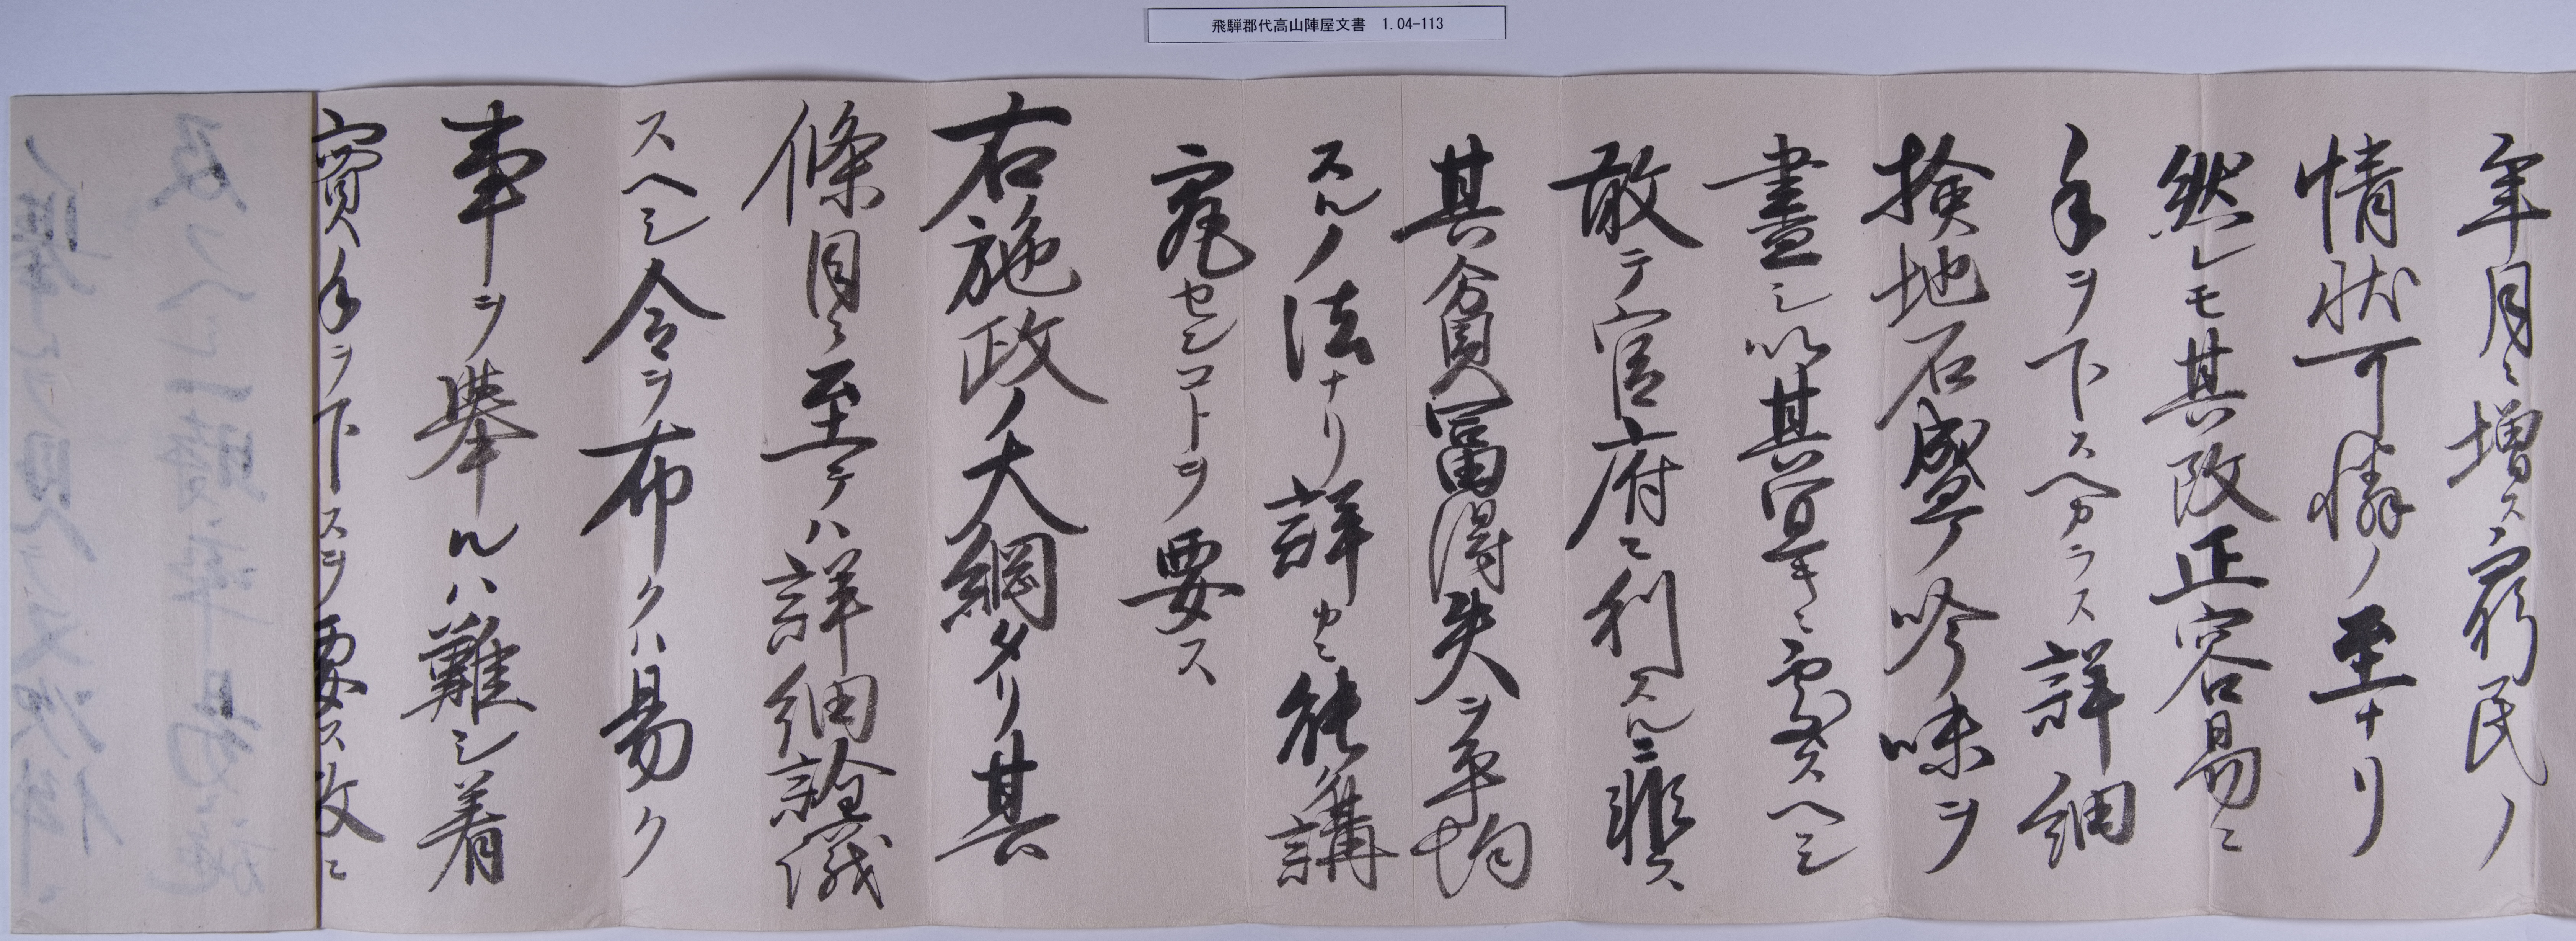 飛騨郡代高山陣屋文書 1.04-113
年月ニ増ス窮民ノ
情状可憐ノ至ナリ
然レモ其改正容易ニ
手ヲ下スヘカラス詳細
検地石盛ノ吟味ヲ
盡シ以其宜キニ處スヘシ
敢テ官府ニ利スルニ非ス
其貧冨得失ヲ平均
スルノ法ナリ詳カニ能講
究センコトヲ要ス
右施政ノ大綱タリ其
條目ニ至テハ詳細論議
スヘシ令ヲ布クハ易ク
事ヲ舉ルハ難シ着
實手ヲ下スヲ要ス故ニ